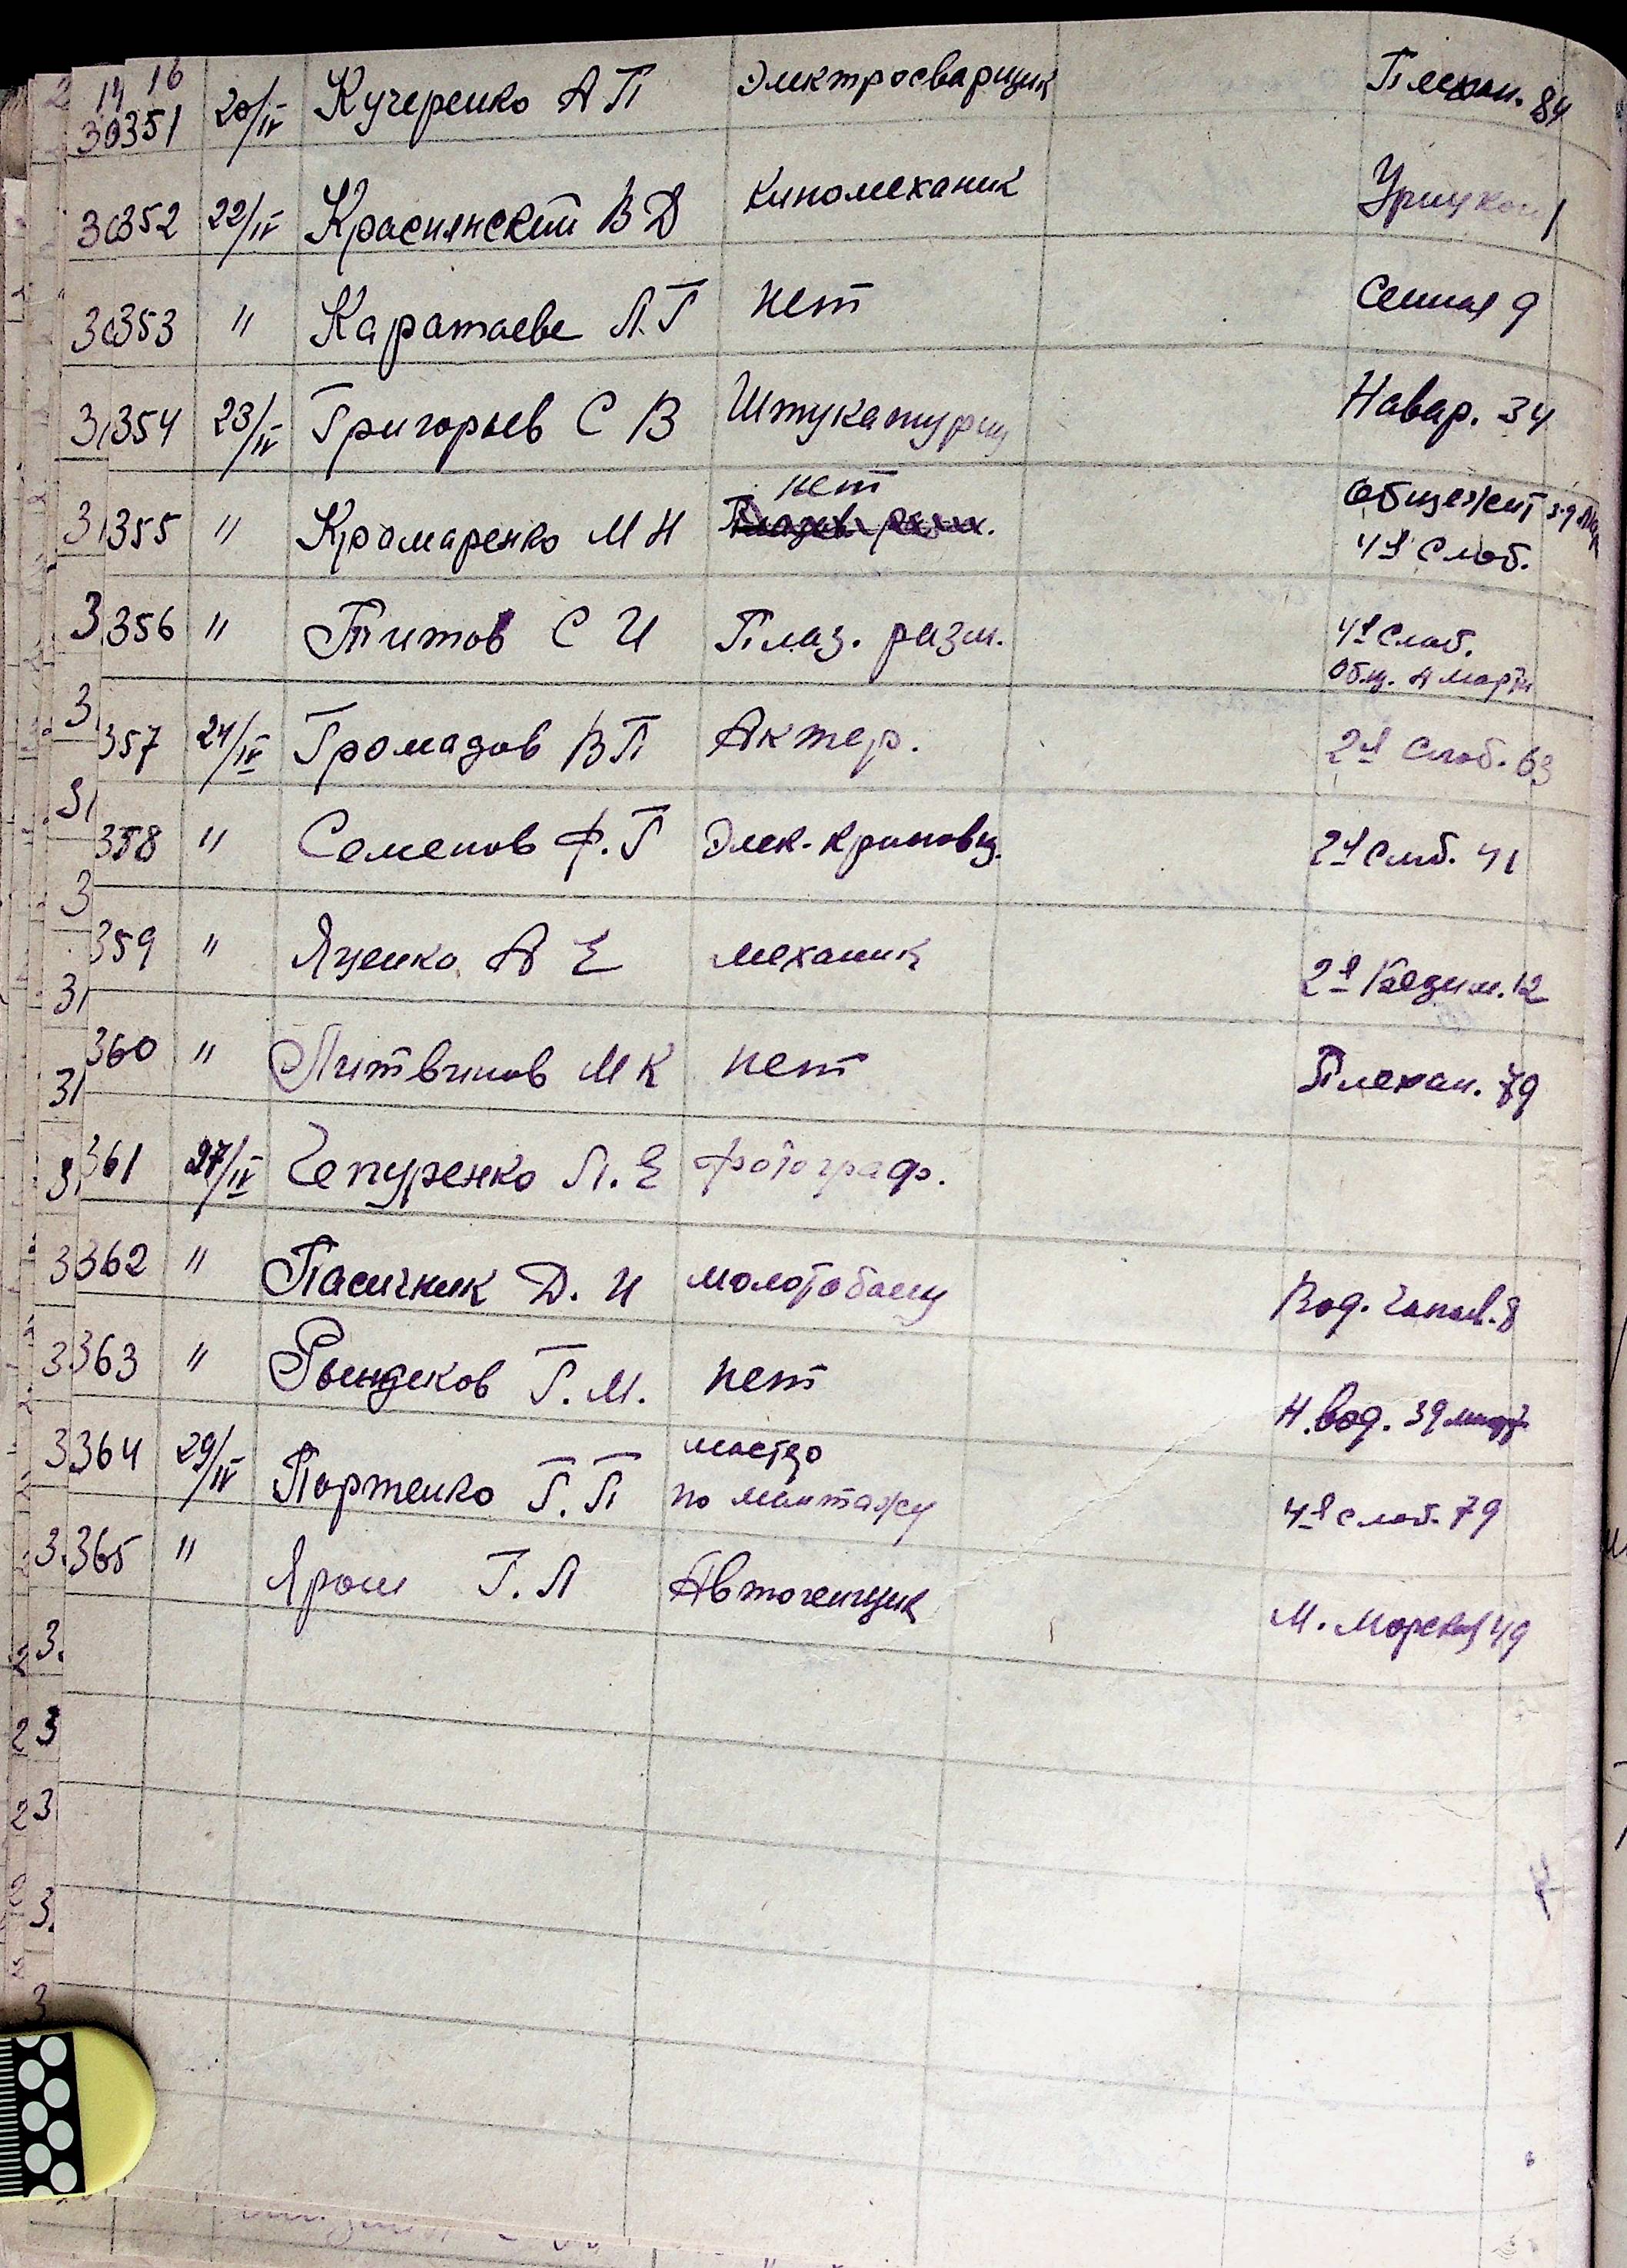 351 20/IV Кучеренко А П Электросварщик Плехан. 84
352 22/IV Краснянский В Д киномеханик Урицкого 1
353 " Каратаева Л.Г нет Сенная 9
354 23/IV Григорьев С В Штукатурщ Навар. 34
нет
355 " Крамаренко М Н общежит
4я Слоб.
356 " Титов С И Плаз. разм. 4я Слоб.
Общ. А марти
357 24/IV Громадов В П Актер. 2я Слоб. 63
358 " Семенов Ф. Г Элек. крановщ. 2я Слоб. 41
359 " Яценко А Е механик 12
360 " Литвинов М К нет Плехан. 79
361 27/IV Чепуренко Л. Е фотограф.
362 " Пасичник Д. И молотобоец Вод. Чапаев. 8
363 " Рындиков Г. М. нет Н. Вод. 39
мастер
364 29/IV Портенко Г. П по монтажу 4я Слоб. 79
365 " Ярош Г. Л Автогенщик М. Морская 49